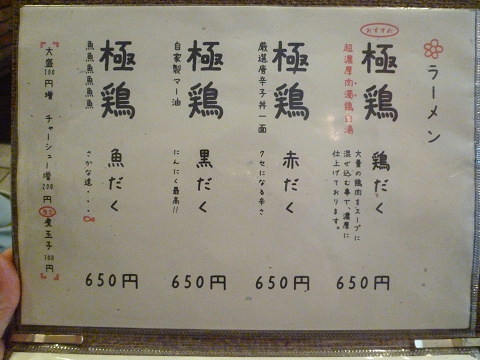 ラーメン
おすすめ
極鶏 鶏だく
超濃厚肉濁鶏白湯
大量の鶏肉をスープに
混ぜ込む事で、濃厚に
仕上げております。
650円
極鶏 赤だく
厳選唐辛子丼一面
クセになる辛さ
650円
極鶏 黒だく
自家製マー油
にんにく最高!!
650円
極鶏 魚だく
魚魚魚魚魚魚
さかな達・・・
650円
大盛100円増 チャーシュー増200円
煮玉子100円